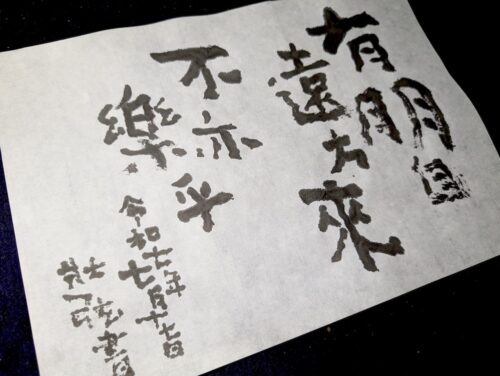 有朋自
遠方來
不亦
樂乎
令和七年
七月十七日